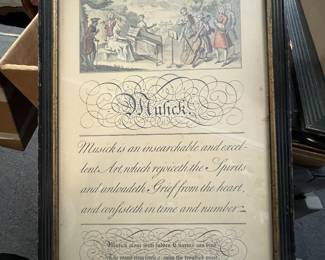 Musick.
Musick is an unsearchable and excel-
lent Art, which rejoiceth the Spirits
and unloadeth Grief from the heart,
and consisteth in time and number.
Musick alone with sudden Charms can bind